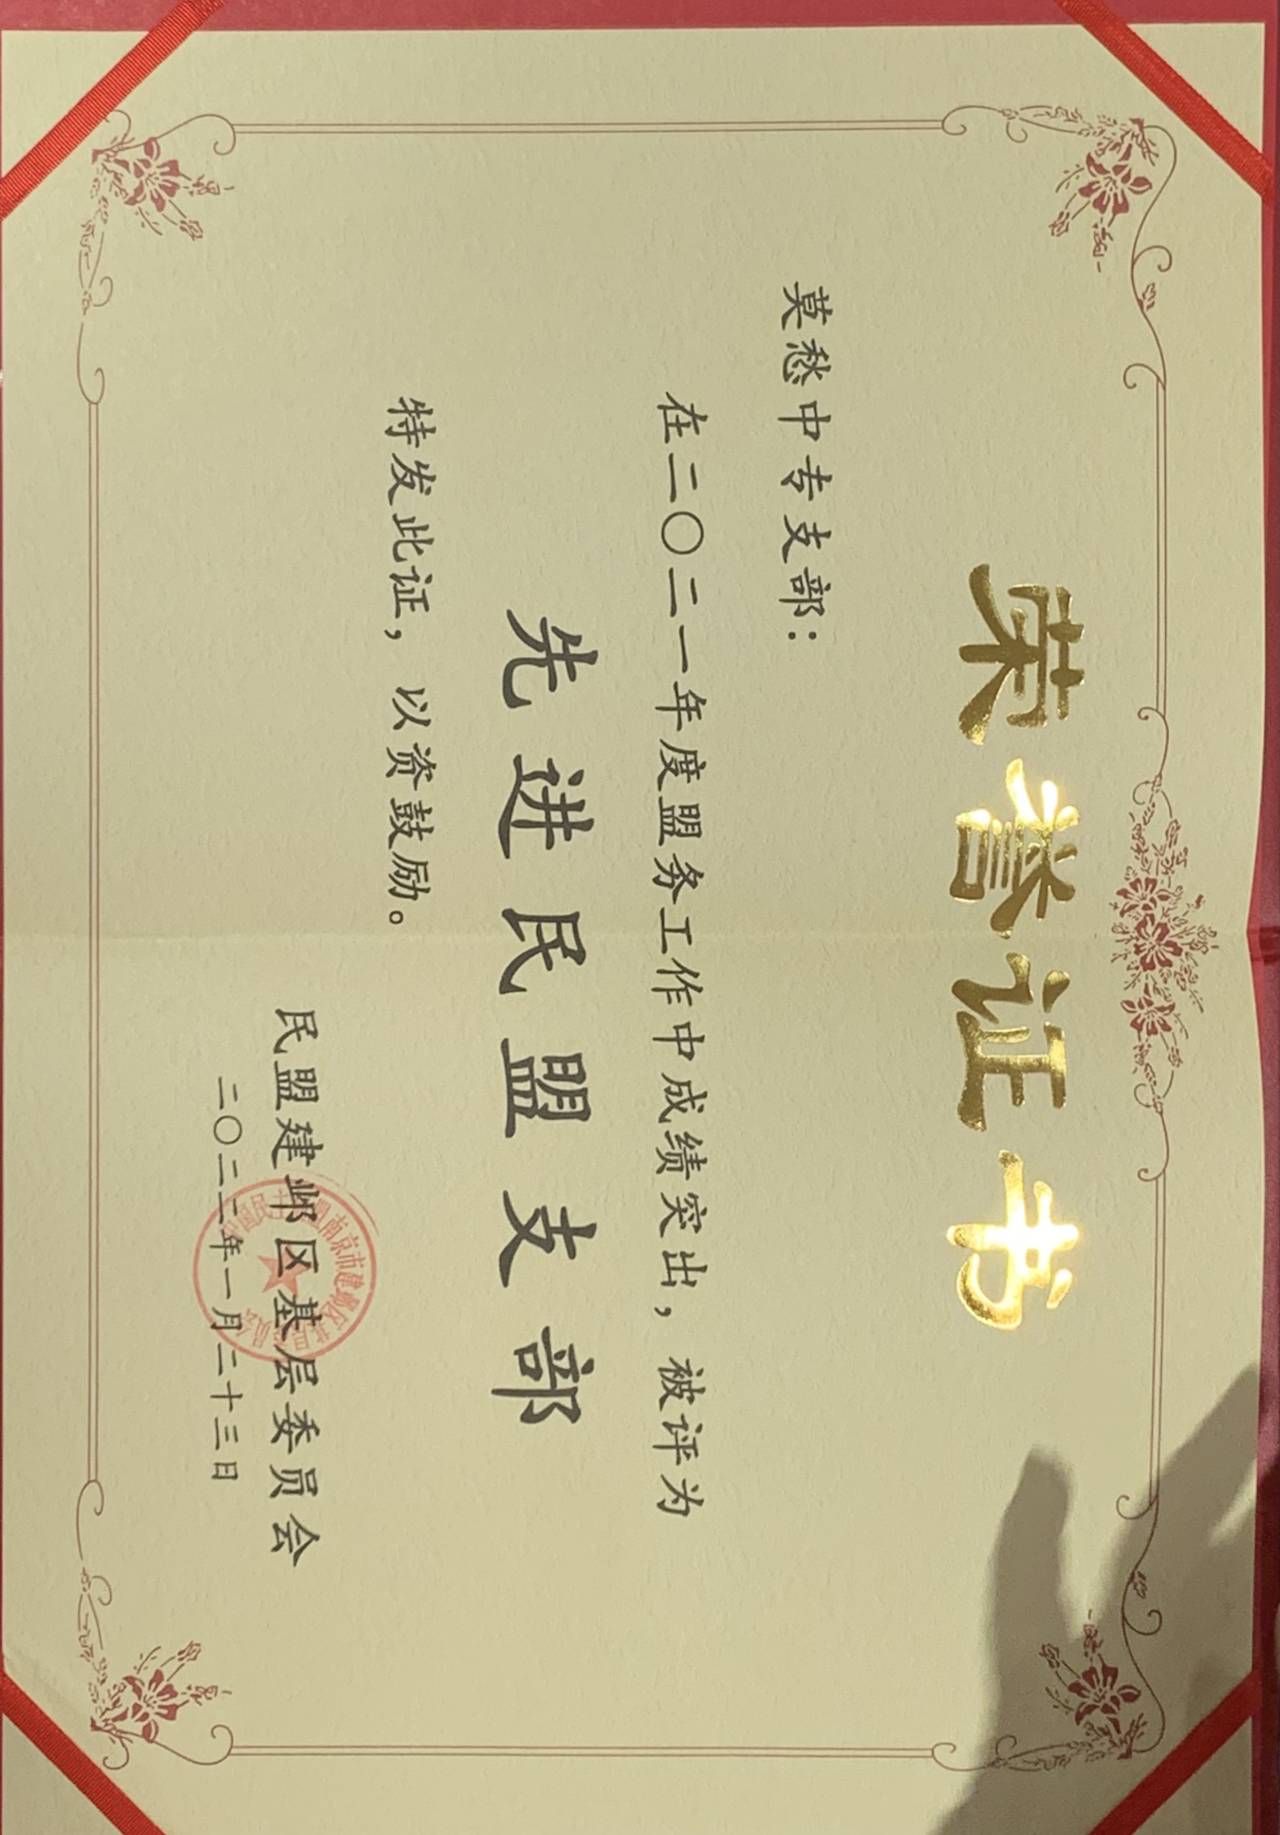 荣誉证书
莫愁中专支部：
在二〇二一年度盟务工作中成绩突出，被评为
先进民盟支部
特发此证，以资鼓励。
民盟建邺区基层委员会
二〇二二年一月二十三日